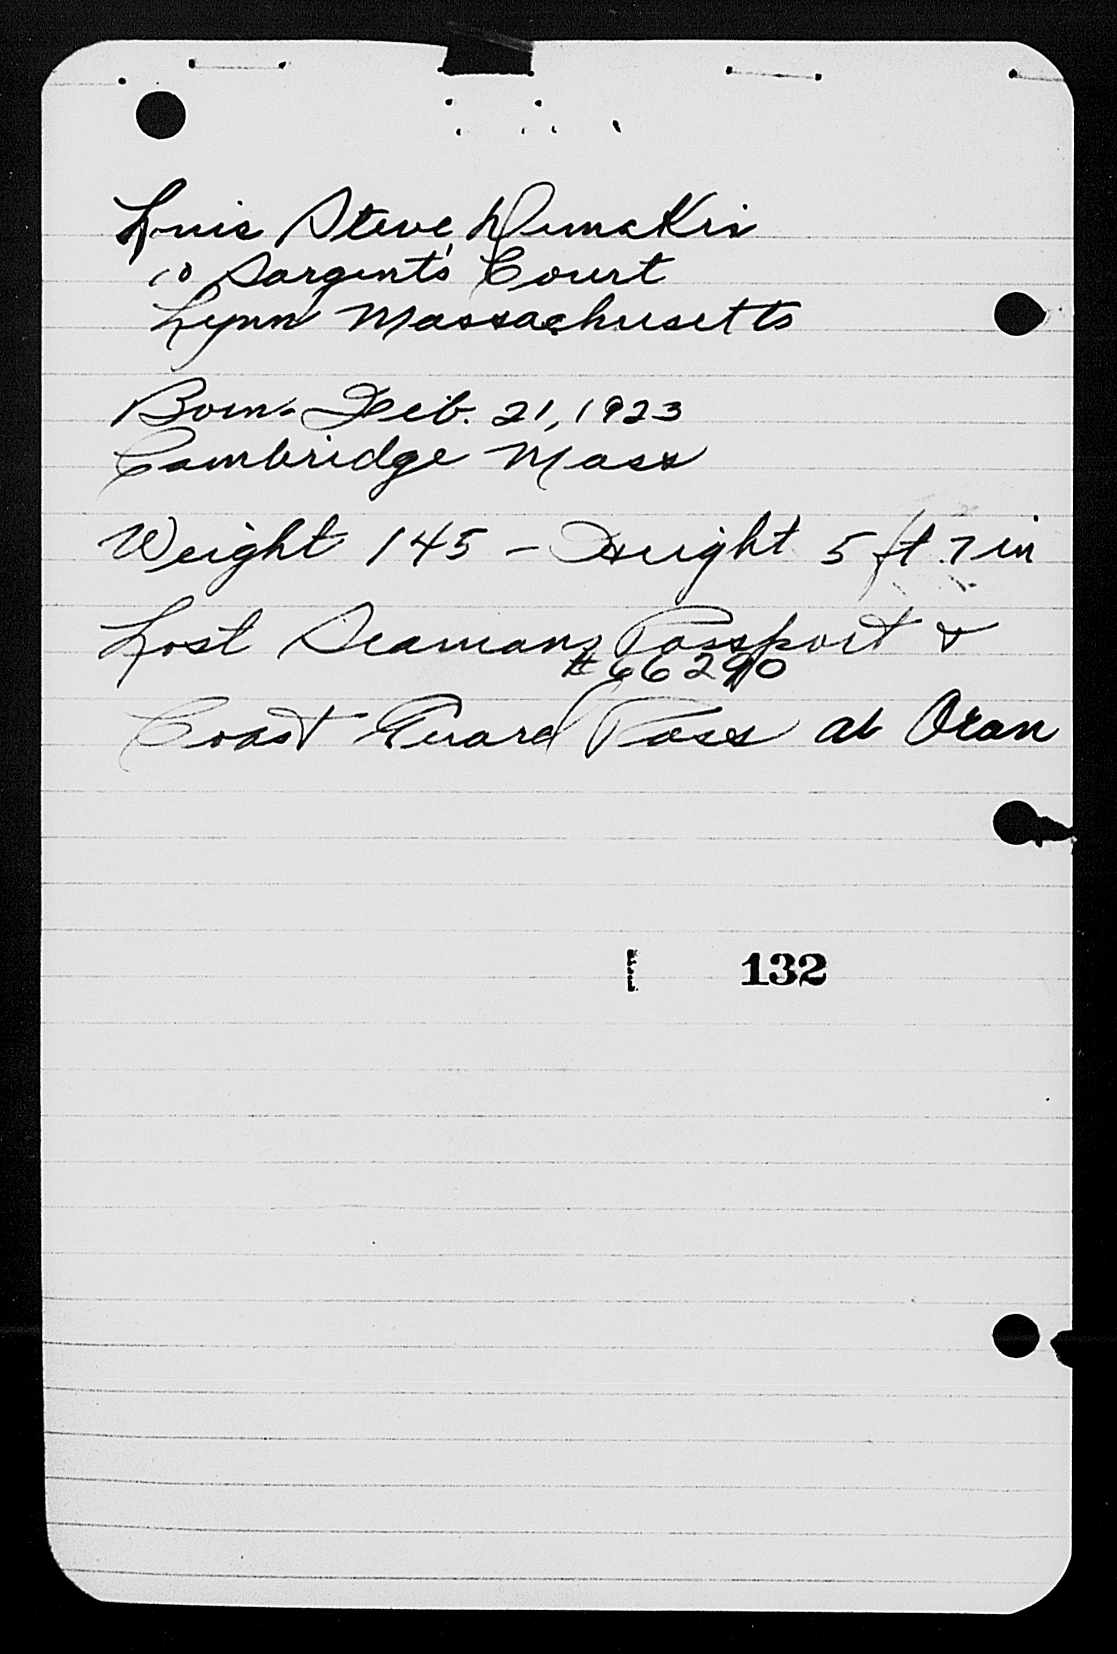 Luis Steve DumaKis
10 Sargents Court
Lynn Massachusetts
Born - Feb. 21, 1923
Cambridge Mass
Weight 145 - Height 5 ft 7 in
Lost Seamans Passport &
# 66290
Coast Guard Pass at Oran
132